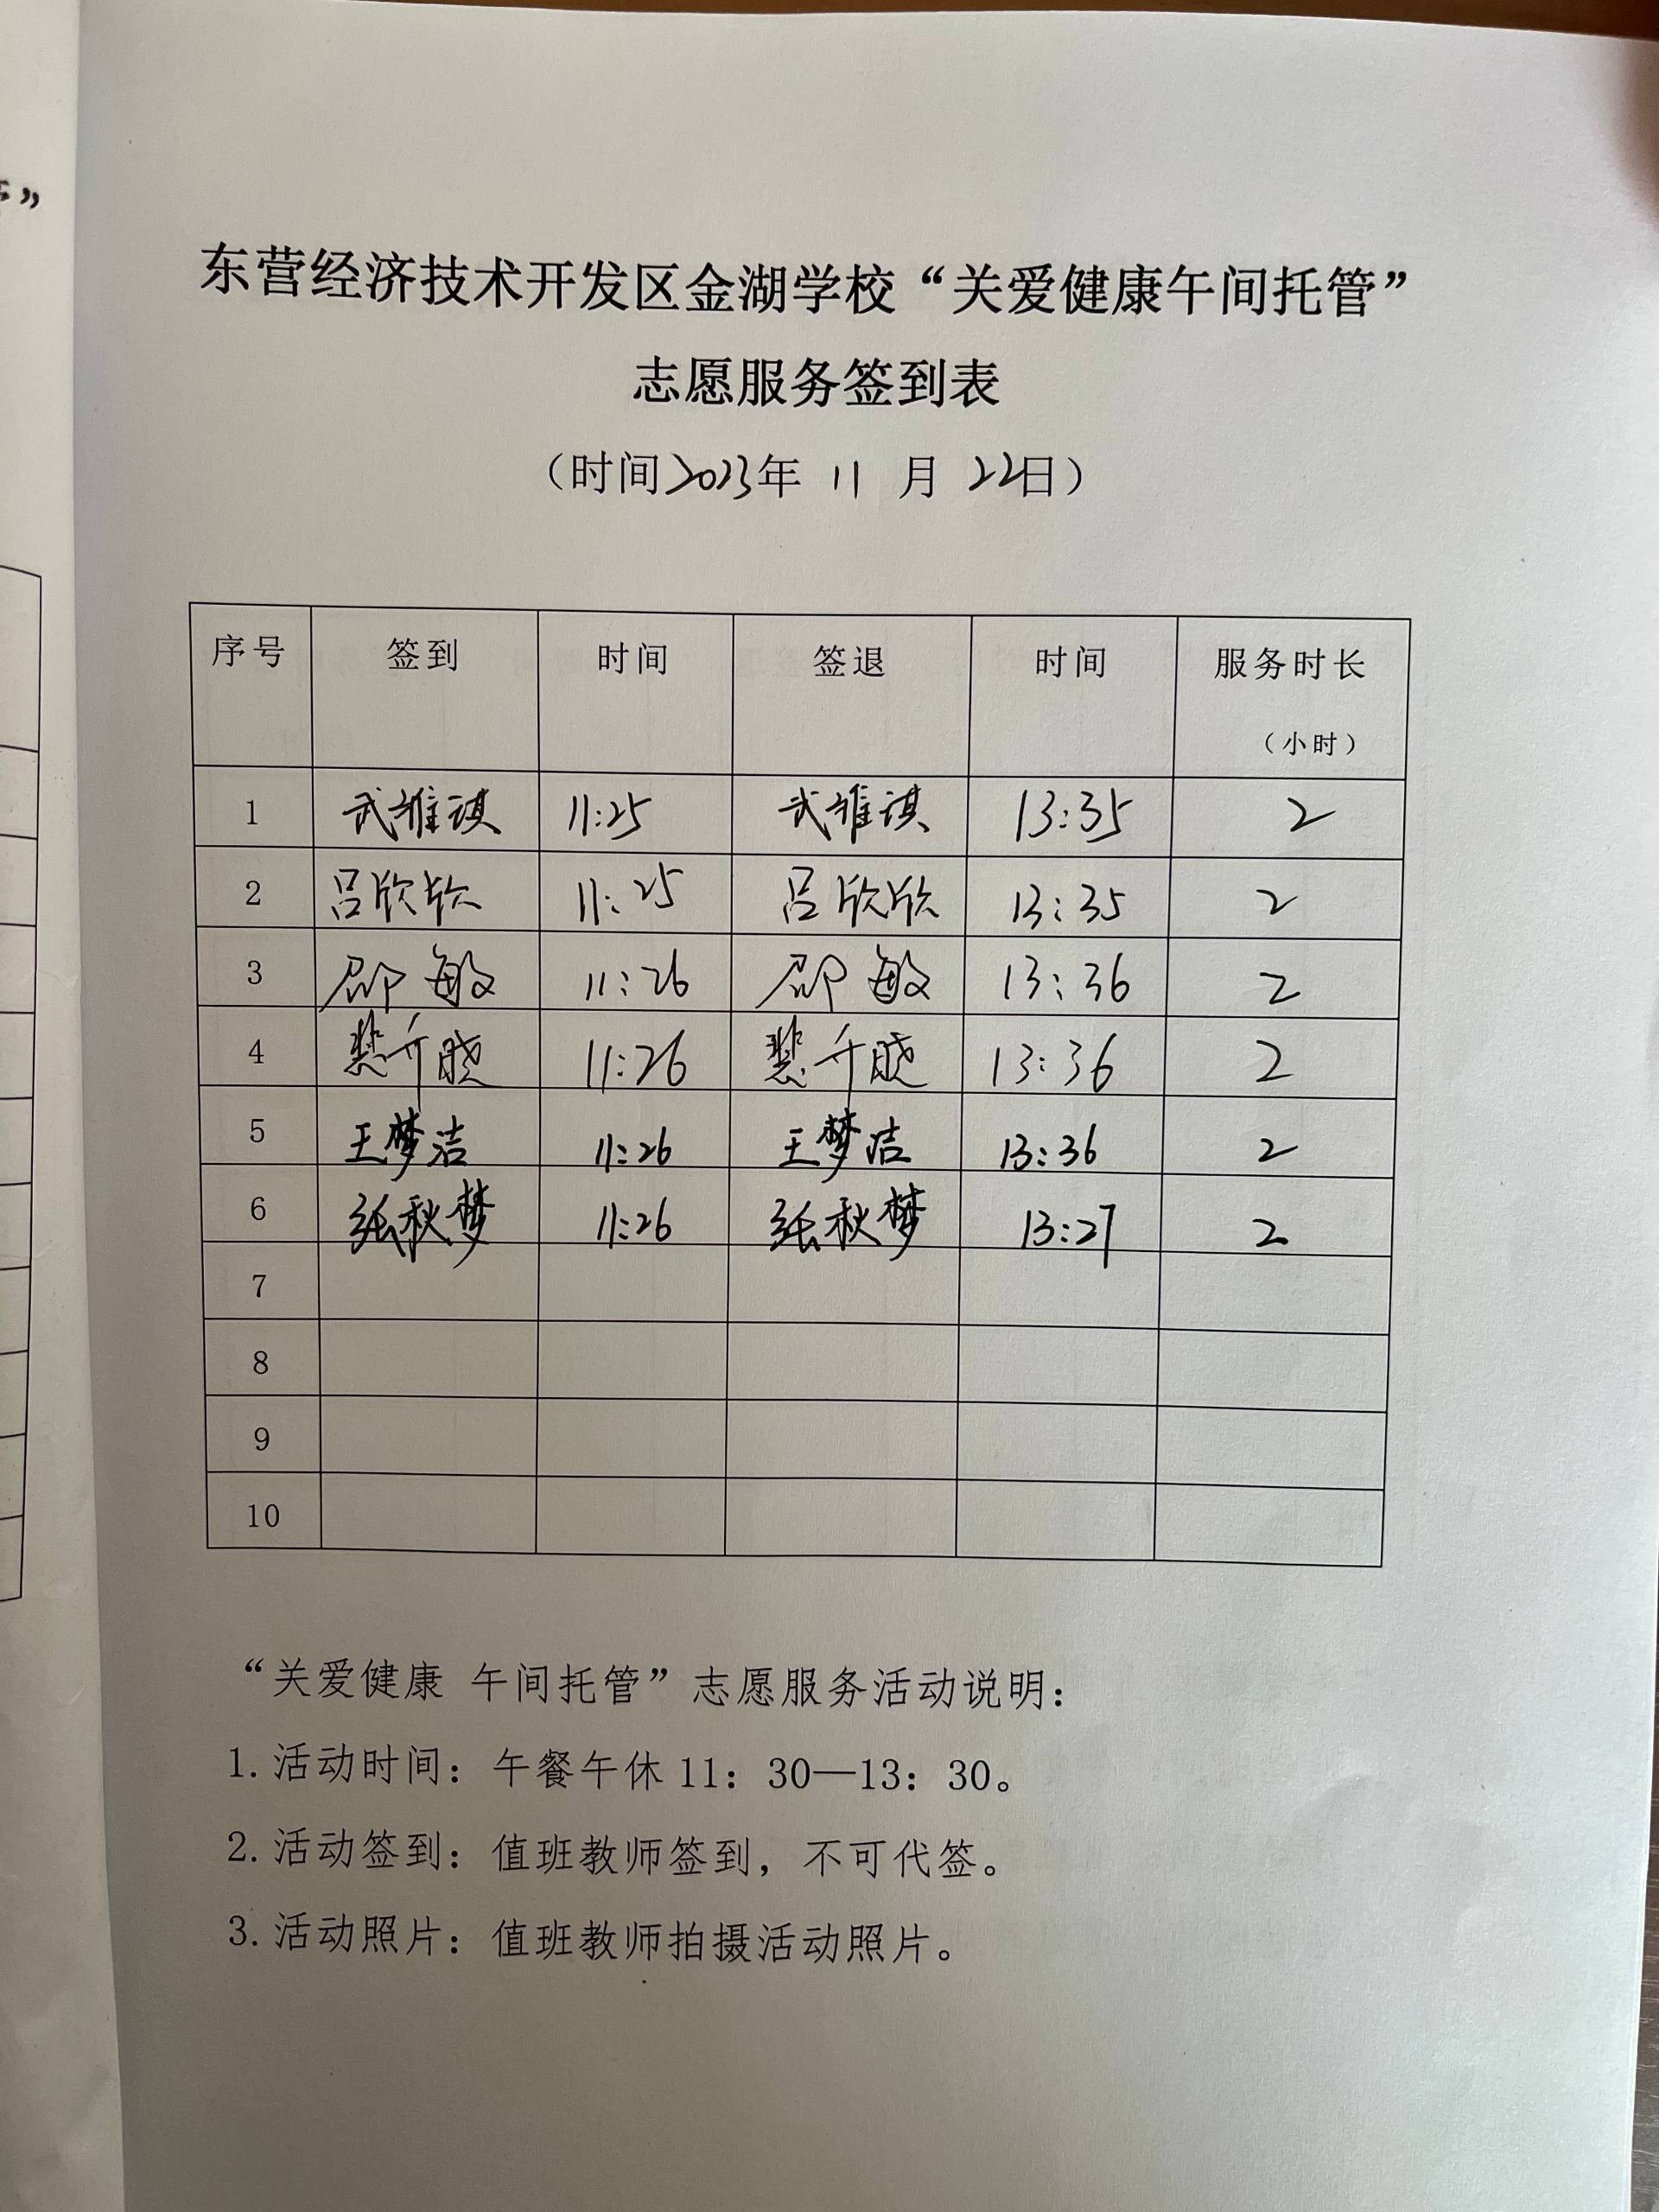 东营经济技术开发区金湖学校“关爱健康午间托管”
志愿服务签到表
（时间2023年 11 月 22日）
序号 签到 时间 签退 时间 服务时长
（小时）
1 武维淇 11:25 武维淇 13:35 2
2 吕欣欣 11:25 吕欣欣 13:35 2
3 邵敏 11:26 邵敏 13:36 2
4 11:26 13:36 2
5 王梦洁 11:26 王梦洁 13:36 2
6 张秋梦 11:26 张秋梦 13:27 2
7
8
9
10
“关爱健康 午间托管”志愿服务活动说明：
1. 活动时间：午餐午休 11：30—13：30。
2. 活动签到：值班教师签到，不可代签。
3. 活动照片：值班教师拍摄活动照片。